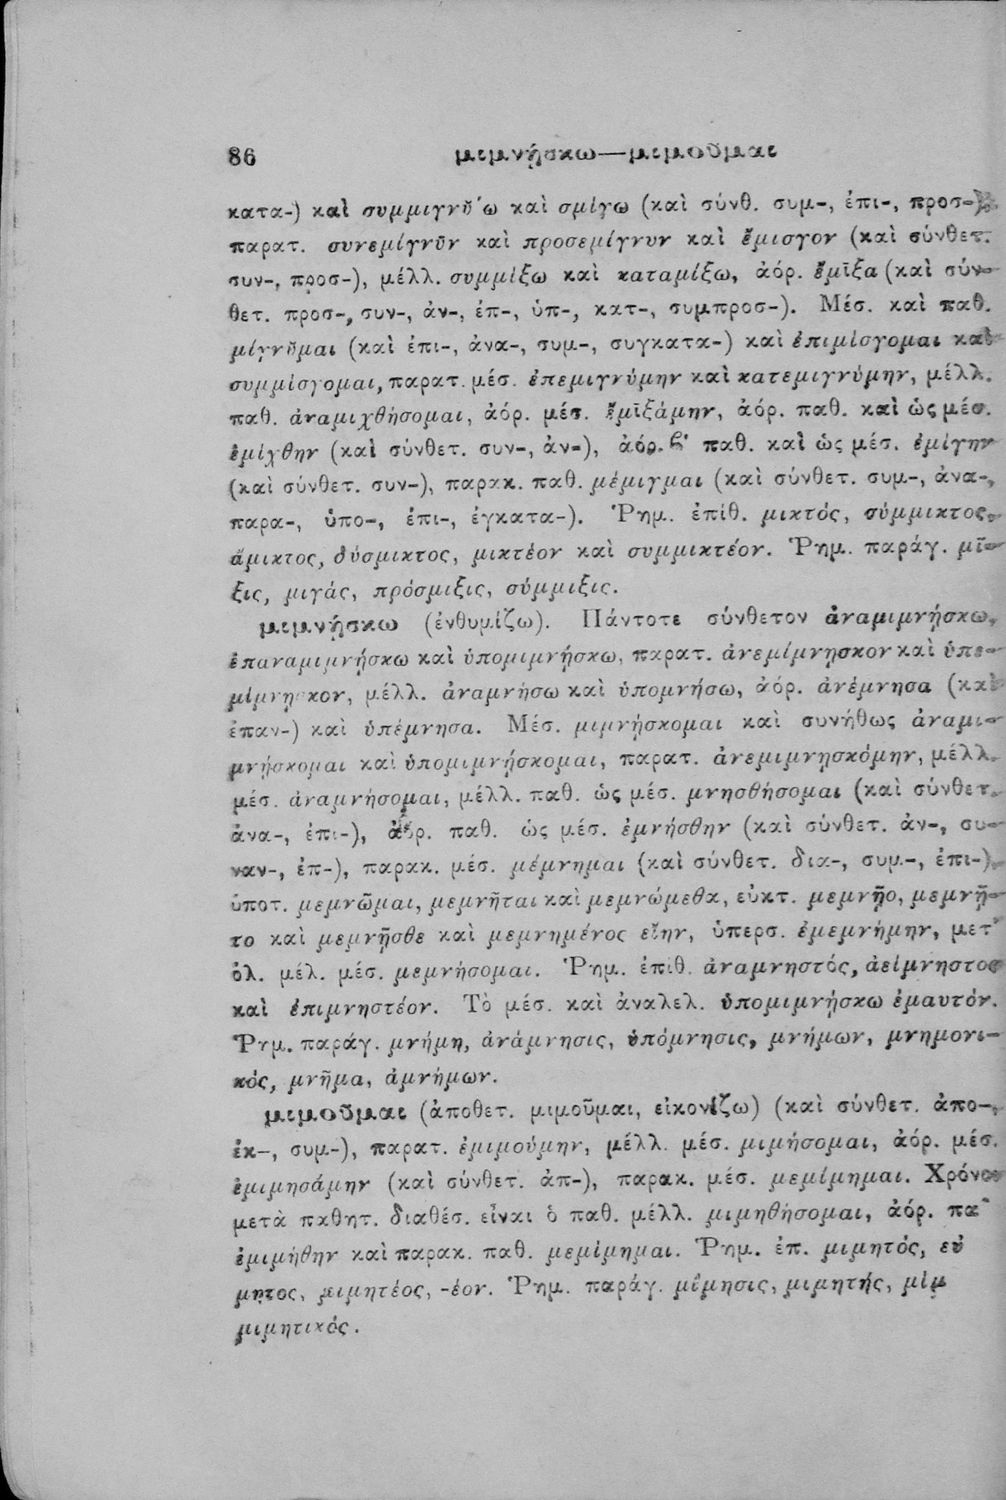 86 μιμνήσκω—μιμοῦμαι
κατα-) καὶ συμμιγνῠ́ω καὶ σμίγω (καὶ σύνθ. συμ-, ἐπι-, προσ-),
παρατ. συνεμίγνῡν καὶ προσεμίγνυν καὶ ἔμισγον (καὶ σύνθετ.
συν-, προσ-), μέλλ. συμμίξω καὶ καταμίξω, ἀόρ. ἔμῑξα (καὶ σύν-
θετ. προσ-, συν-, ἀν-, ἐπ-, ὑπ-, κατ-, συμπροσ-). Μέσ. καὶ παθ.
μίγνῠμαι (καὶ ἐπι-, ἀνα-, συμ-, συγκατα-) καὶ ἐπιμίσγομαι καὶ
συμμίσγομαι, παρατ. μέσ. ἐπεμιγνύμην καὶ κατεμιγνύμην, μέλλ.
παθ. ἀναμιχθήσομαι, ἀόρ. μέσ. ἐμῑξάμην, ἀόρ. παθ. καὶ ὡς μέσ.
ἐμίχθην (καὶ σύνθετ. συν-, ἀν-), ἀόρ. β′ παθ. καὶ ὡς μέσ. ἐμίγην
(καὶ σύνθετ. συν-), παρακ. παθ. μέμιγμαι (καὶ σύνθετ. συμ-, ἀνα-,
παρα-, ὑπο-, ἐπι-, ἐγκατα-). Ῥημ. ἐπίθ. μικτός, σύμμικτος,
ἄμικτος, δύσμικτος, μικτέον καὶ συμμικτέον. Ῥημ. παράγ. μῖ-
ξις, μιγάς, πρόσμιξις, σύμμιξις.
μιμνήσκω (ἐνθυμίζω). Πάντοτε σύνθετον ἀναμιμνήσκω,
ἐπαναμιμνήσκω καὶ ὑπομιμνήσκω, παρατ. ἀνεμίμνησκον καὶ ὑπε-
μίμνησκον, μέλλ. ἀναμνήσω καὶ ὑπομνήσω, ἀόρ. ἀνέμνησα (καὶ
ἐπαν-) καὶ ὑπέμνησα. Μέσ. μιμνήσκομαι καὶ συνήθως ἀναμι-
μνήσκομαι καὶ ὑπομιμνήσκομαι, παρατ. ἀνεμιμνησκόμην, μέλλ.
μέσ. ἀναμνήσομαι, μέλλ. παθ. ὡς μέσ. μνησθήσομαι (καὶ σύνθετ.
ἀνα-, ἐπι-), ἀόρ. παθ. ὡς μέσ. ἐμνήσθην (καὶ σύνθετ. ἀν-, συ-
ναν-, ἐπ-), παρακ. μέσ. μέμνημαι (καὶ σύνθετ. δια-, συμ-, ἐπι-),
ὑποτ. μεμνῶμαι, μεμνῆται καὶ μεμνώμεθα, εὐκτ. μεμνῇο, μεμνῇ-
το καὶ μεμνῇσθε καὶ μεμνημένος εἴην, ὑπερσ. ἐμεμνήμην, μετ'
ὀλ. μέλ. μέσ. μεμνήσομαι. Ῥημ. ἐπίθ. ἀναμνηστός, ἀείμνηστος
καὶ ἐπιμνηστέον. Τὸ μέσ. καὶ ἀναλελ. ὑπομιμνήσκω ἐμαυτόν.
Ῥημ. παράγ. μνήμη, ἀνάμνησις, ὑπόμνησις, μνήμων, μνημονι-
κός, μνῆμα, ἀμνήμων.
μιμοῦμαι (ἀποθετ. μιμοῦμαι, εἰκονίζω) (καὶ σύνθετ. ἀπο-,
ἐκ-, συμ-), παρατ. ἐμιμούμην, μέλλ. μέσ. μιμήσομαι, ἀόρ. μέσ.
ἐμιμησάμην (καὶ σύνθετ. ἀπ-), παρακ. μέσ. μεμίμημαι. Χρόνοι
μετὰ παθητ. διαθέσ. εἶναι ὁ παθ. μέλλ. μιμηθήσομαι, ἀόρ. πα
ἐμιμήθην καὶ παρακ. παθ. μεμίμημαι. Ῥημ. ἐπ. μιμητός, εὐ
μητος, μιμητέος, -έον. Ῥημ. παράγ. μίμησις, μιμητής, μῖμ
μιμητικός.